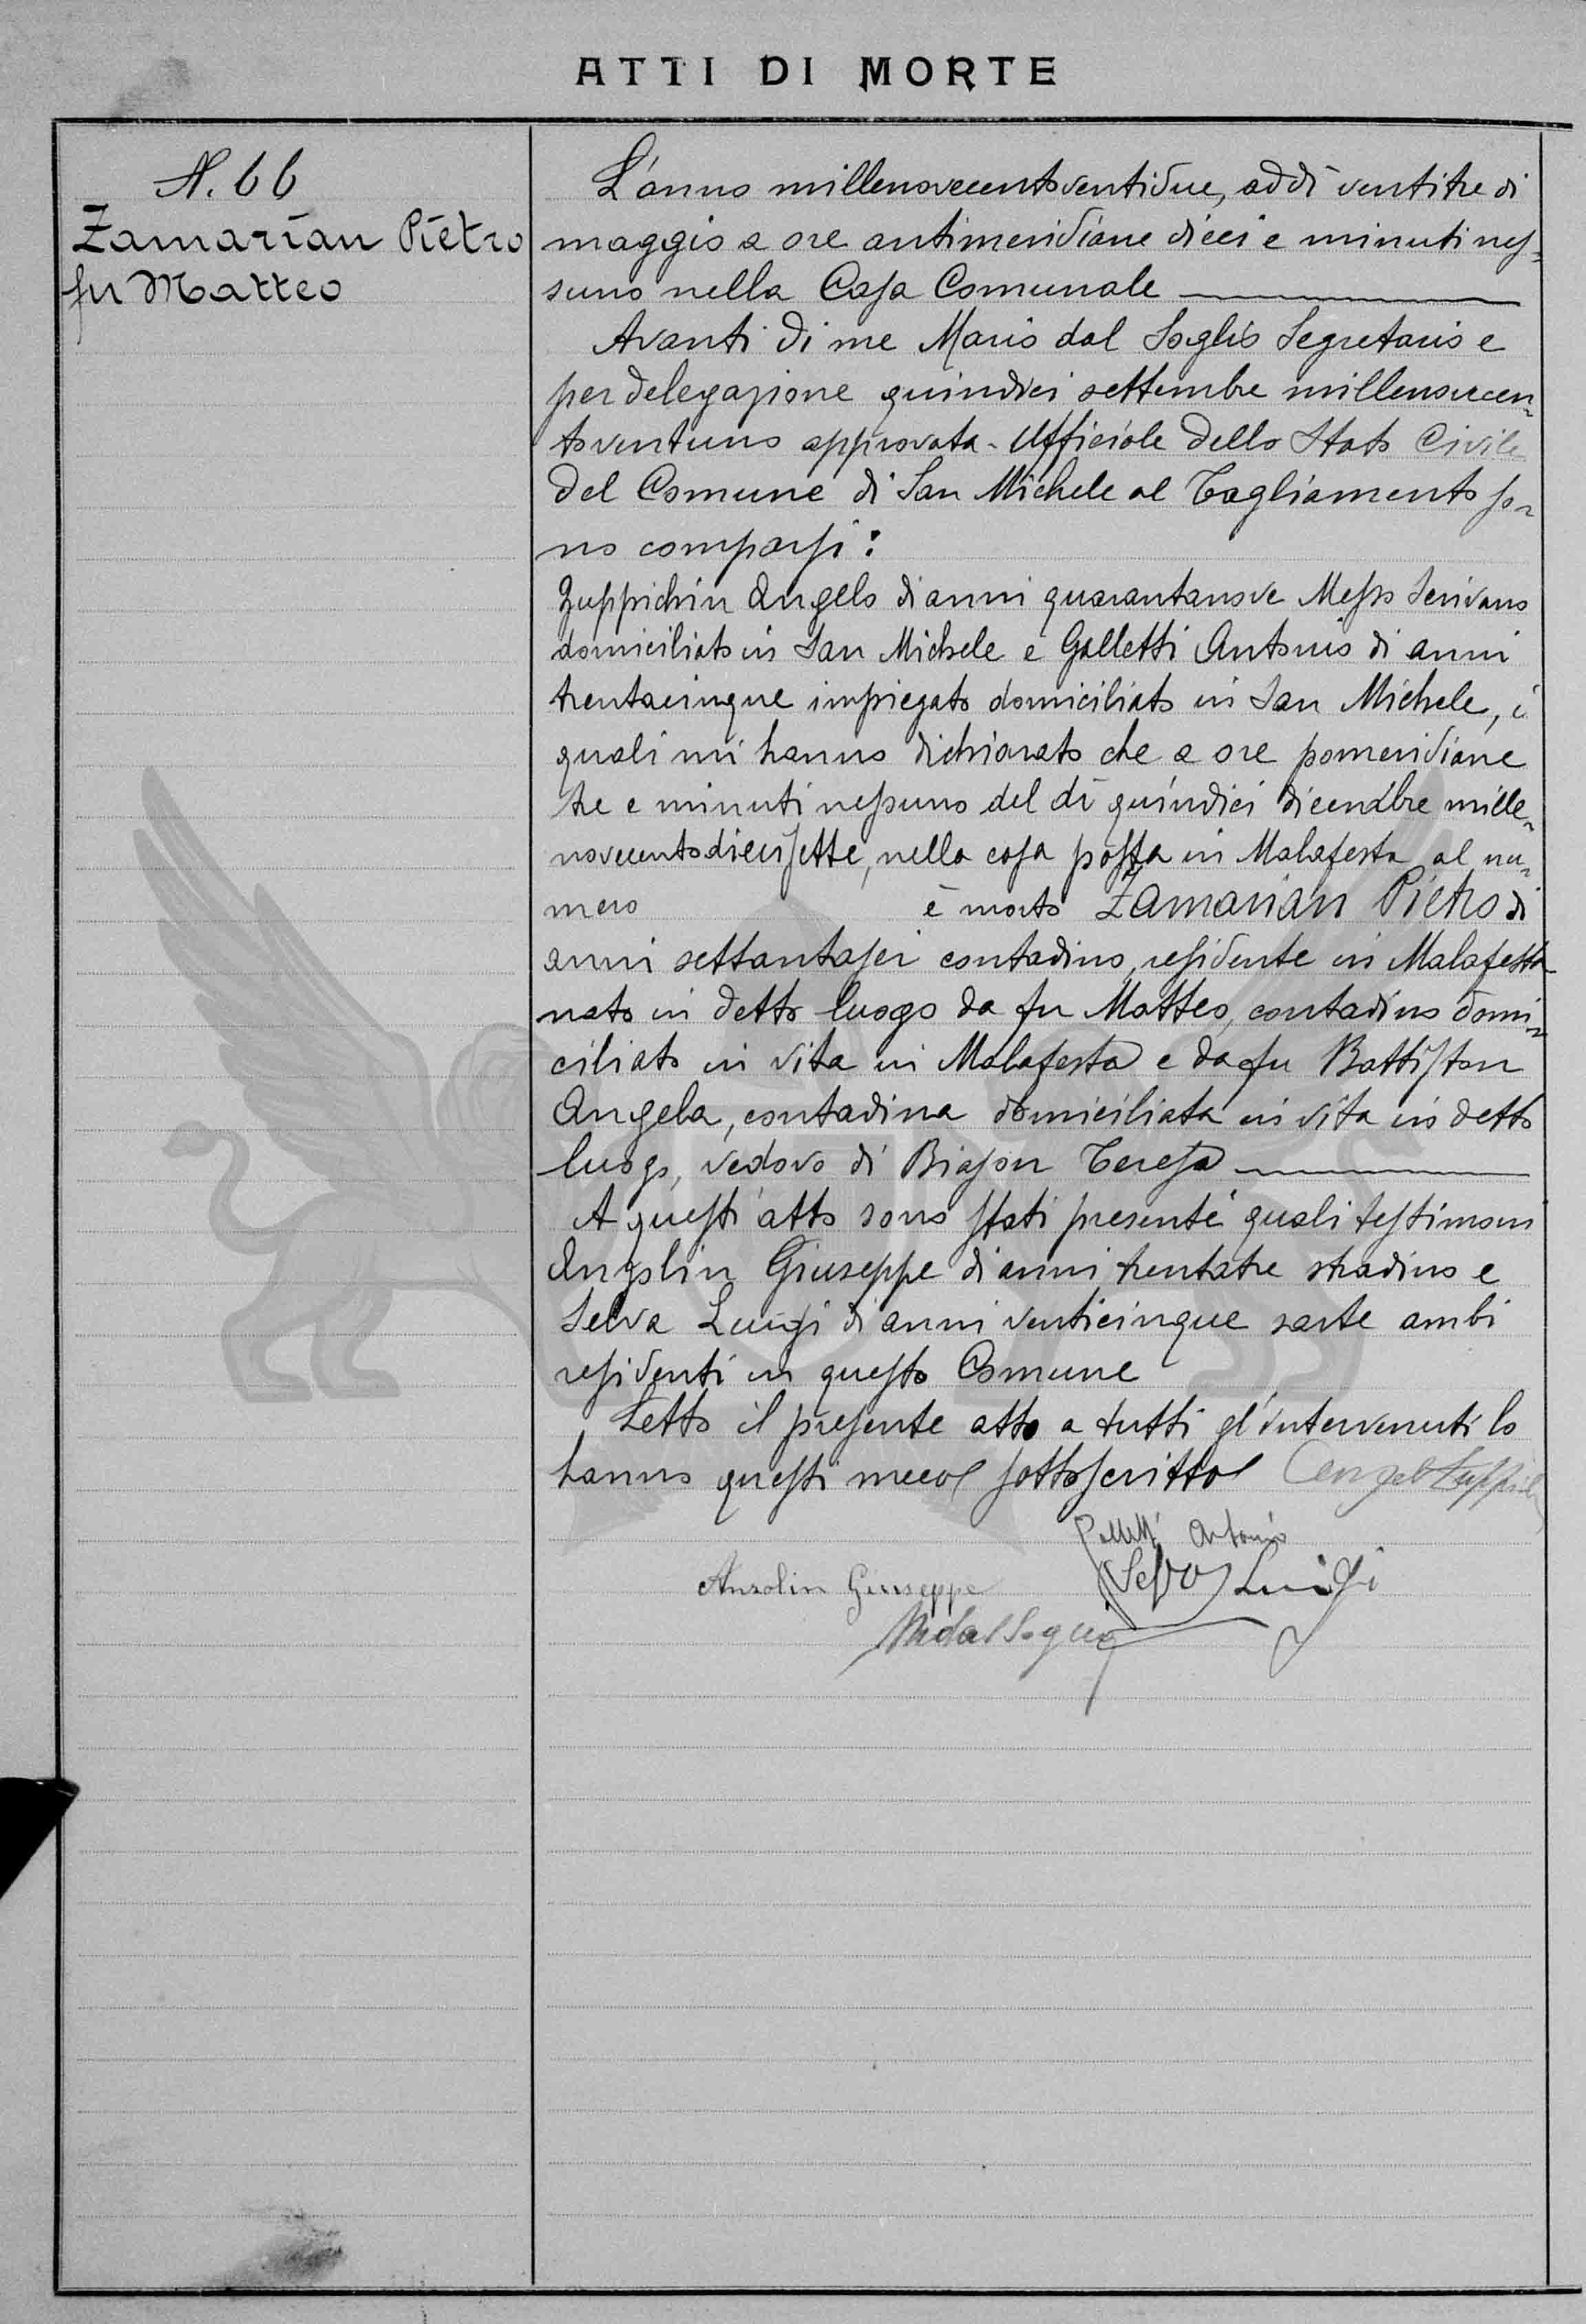 ATTI DI MORTE
N. 66
Zamarian Pietro
fu Matteo
L'anno millenovecentoventidue, addì ventitre di
maggio a ore antimeridiane dieci e minuti nes-
suno nella Casa Comunale
Avanti di me Mario dal Soglio Segretario e
per delegazione quindici settembre millenovecen-
toventuno approvata - Ufficiale dello Stato Civile
del Comune di San Michele al Tagliamento so-
no comparsi:
Zuppichin Angelo di anni quarantanove Messo Scrivano
domiciliato in San Michele e Galletti Antonio di anni
trentacinque impiegato domiciliato in San Michele, i
quali mi hanno dichiarato che a ore pomeridiane
tre e minuti nessuno del dì quindici dicembre mille-
novecentodiecisette, nella casa posta in Malafesta al nu-
mero è morto Zamarian Pietro di
anni settantasei contadino, residente in Malafesta
nato in detto luogo da fu Matteo, contadino domi-
ciliato in vita in Malafesta e da fu Battiston
Angela, contadina domiciliata in vita in detto
luogo, vedovo di Biason Teresa
A questi atto sono stati presenti quali testimoni
Anzolin Giuseppe di anni trentatre stradino e
Selva Luigi di anni venticinque sarte ambi
residenti in questo Comune
Letto il presente atto a tutti gl'intervenuti lo
hanno questi meco sottoscritto
Galletti Antonio
Anzolin Giuseppe Selva Luigi
MdalSoglio